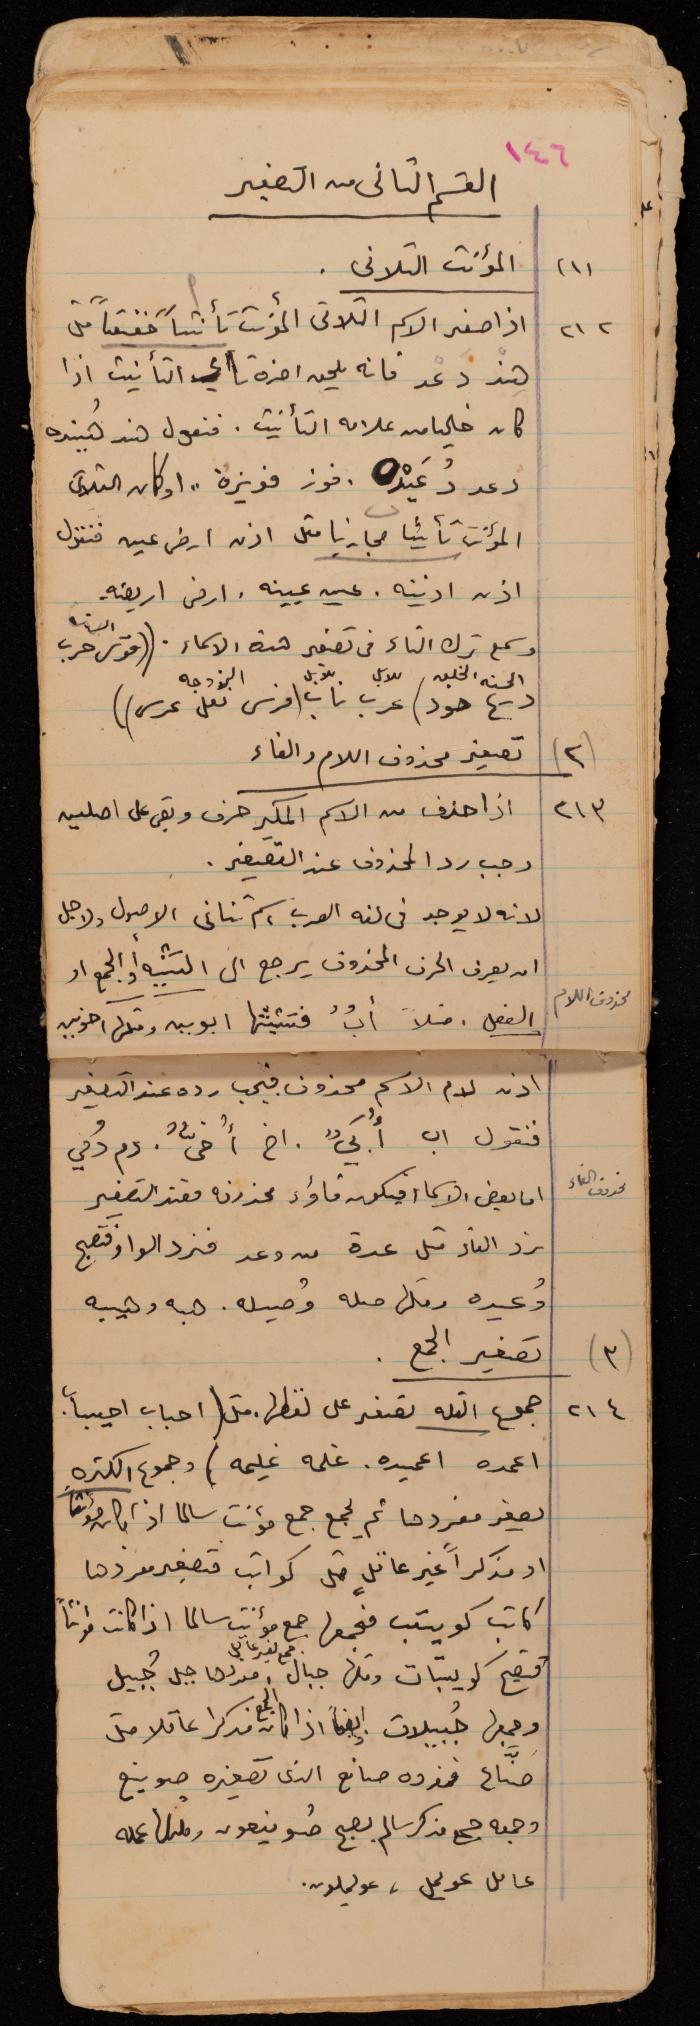 ١٤٦
القسم الثانى من التصغير
٢١١ المؤنث الثلاثى .
٢١٢ اذا صغر الاسم الثلاثى المؤنث تأنيثاً حقيقياً مثل
هِنْد دَعْد فانه يلحق اخره تاء التأنيث اذا
كان خاليا من علامه التأنيث . فنقول هند هُنيده
دعد دُعَيْدة . فوز فويزة .. او كان الثلاثى
المؤنث تأنيثا مجازيا مثل اذن ارض عين فنقول
اذن اذينه . عين عيينه . ارض اريضه
وسمع ترك التاء فى تصغير هذه الاسماء . ((قوس حرب
درع خود) عرب ناب (فرس نعل عرس))
(٢) تصغير محذوف اللام والفاء
٢١٣ اذا حذف من الاسم المكبر حرف وبقى على اصلين
وجب رد المحذوف عند التصغير .
لانه لا يوجد فى لغه العرب اسم ثنائى الاصول ولاجل
ان يعرف الحرف المحذوف يرجع الى التثنيه أو الجمع او
محذوف اللام
الفعل . مثلاً أبٌ فتثنيتها ابوين ومثلها اخوين
اذن لام الاسم محذوف فيجب رده عند التصغير
فنقول اب أُبَيٌّ . اخ أُخىٌّ . دم دُمي
محذوف الفاء
اما بعض الاسماء فيكون فاؤه محذوفه فعند التصغير
نرد الفاء مثل عدة من وعد فنرد الواو فتصبح
وُعيده ومثلها صله وُصيله . هبه وهيبه
(٣) تصغير الجمع .
٢١٤ جموع القله تصغر على لفظها . مثل (احباب احيباب .
اعمده اعيمده . غلمه غليمه) وجموع الكثره
يصغر مفردها ثم يجمع جمع مؤنث سالما اذا كان مؤنثاً
او مذكراً غير عاقل مثل كواتب فتصغير مفردها
كاتب كويتب فنجمعها جمع مؤنث سالما اذا كانت مؤنثاً
فتصبح كويتبات ومثلها جبال مفردها جبل جُبيل
وجمعها جُبيلات ايضاً اذا كان الجمع مذكرا عاقلا مثل
صُنَّاع فمفرده صانع الذى تصغيره صوينع
وجمعه جمع مذكر سالم يصبح صُوينعون ومثلها عمله
عامل عويمل ، عويملون .